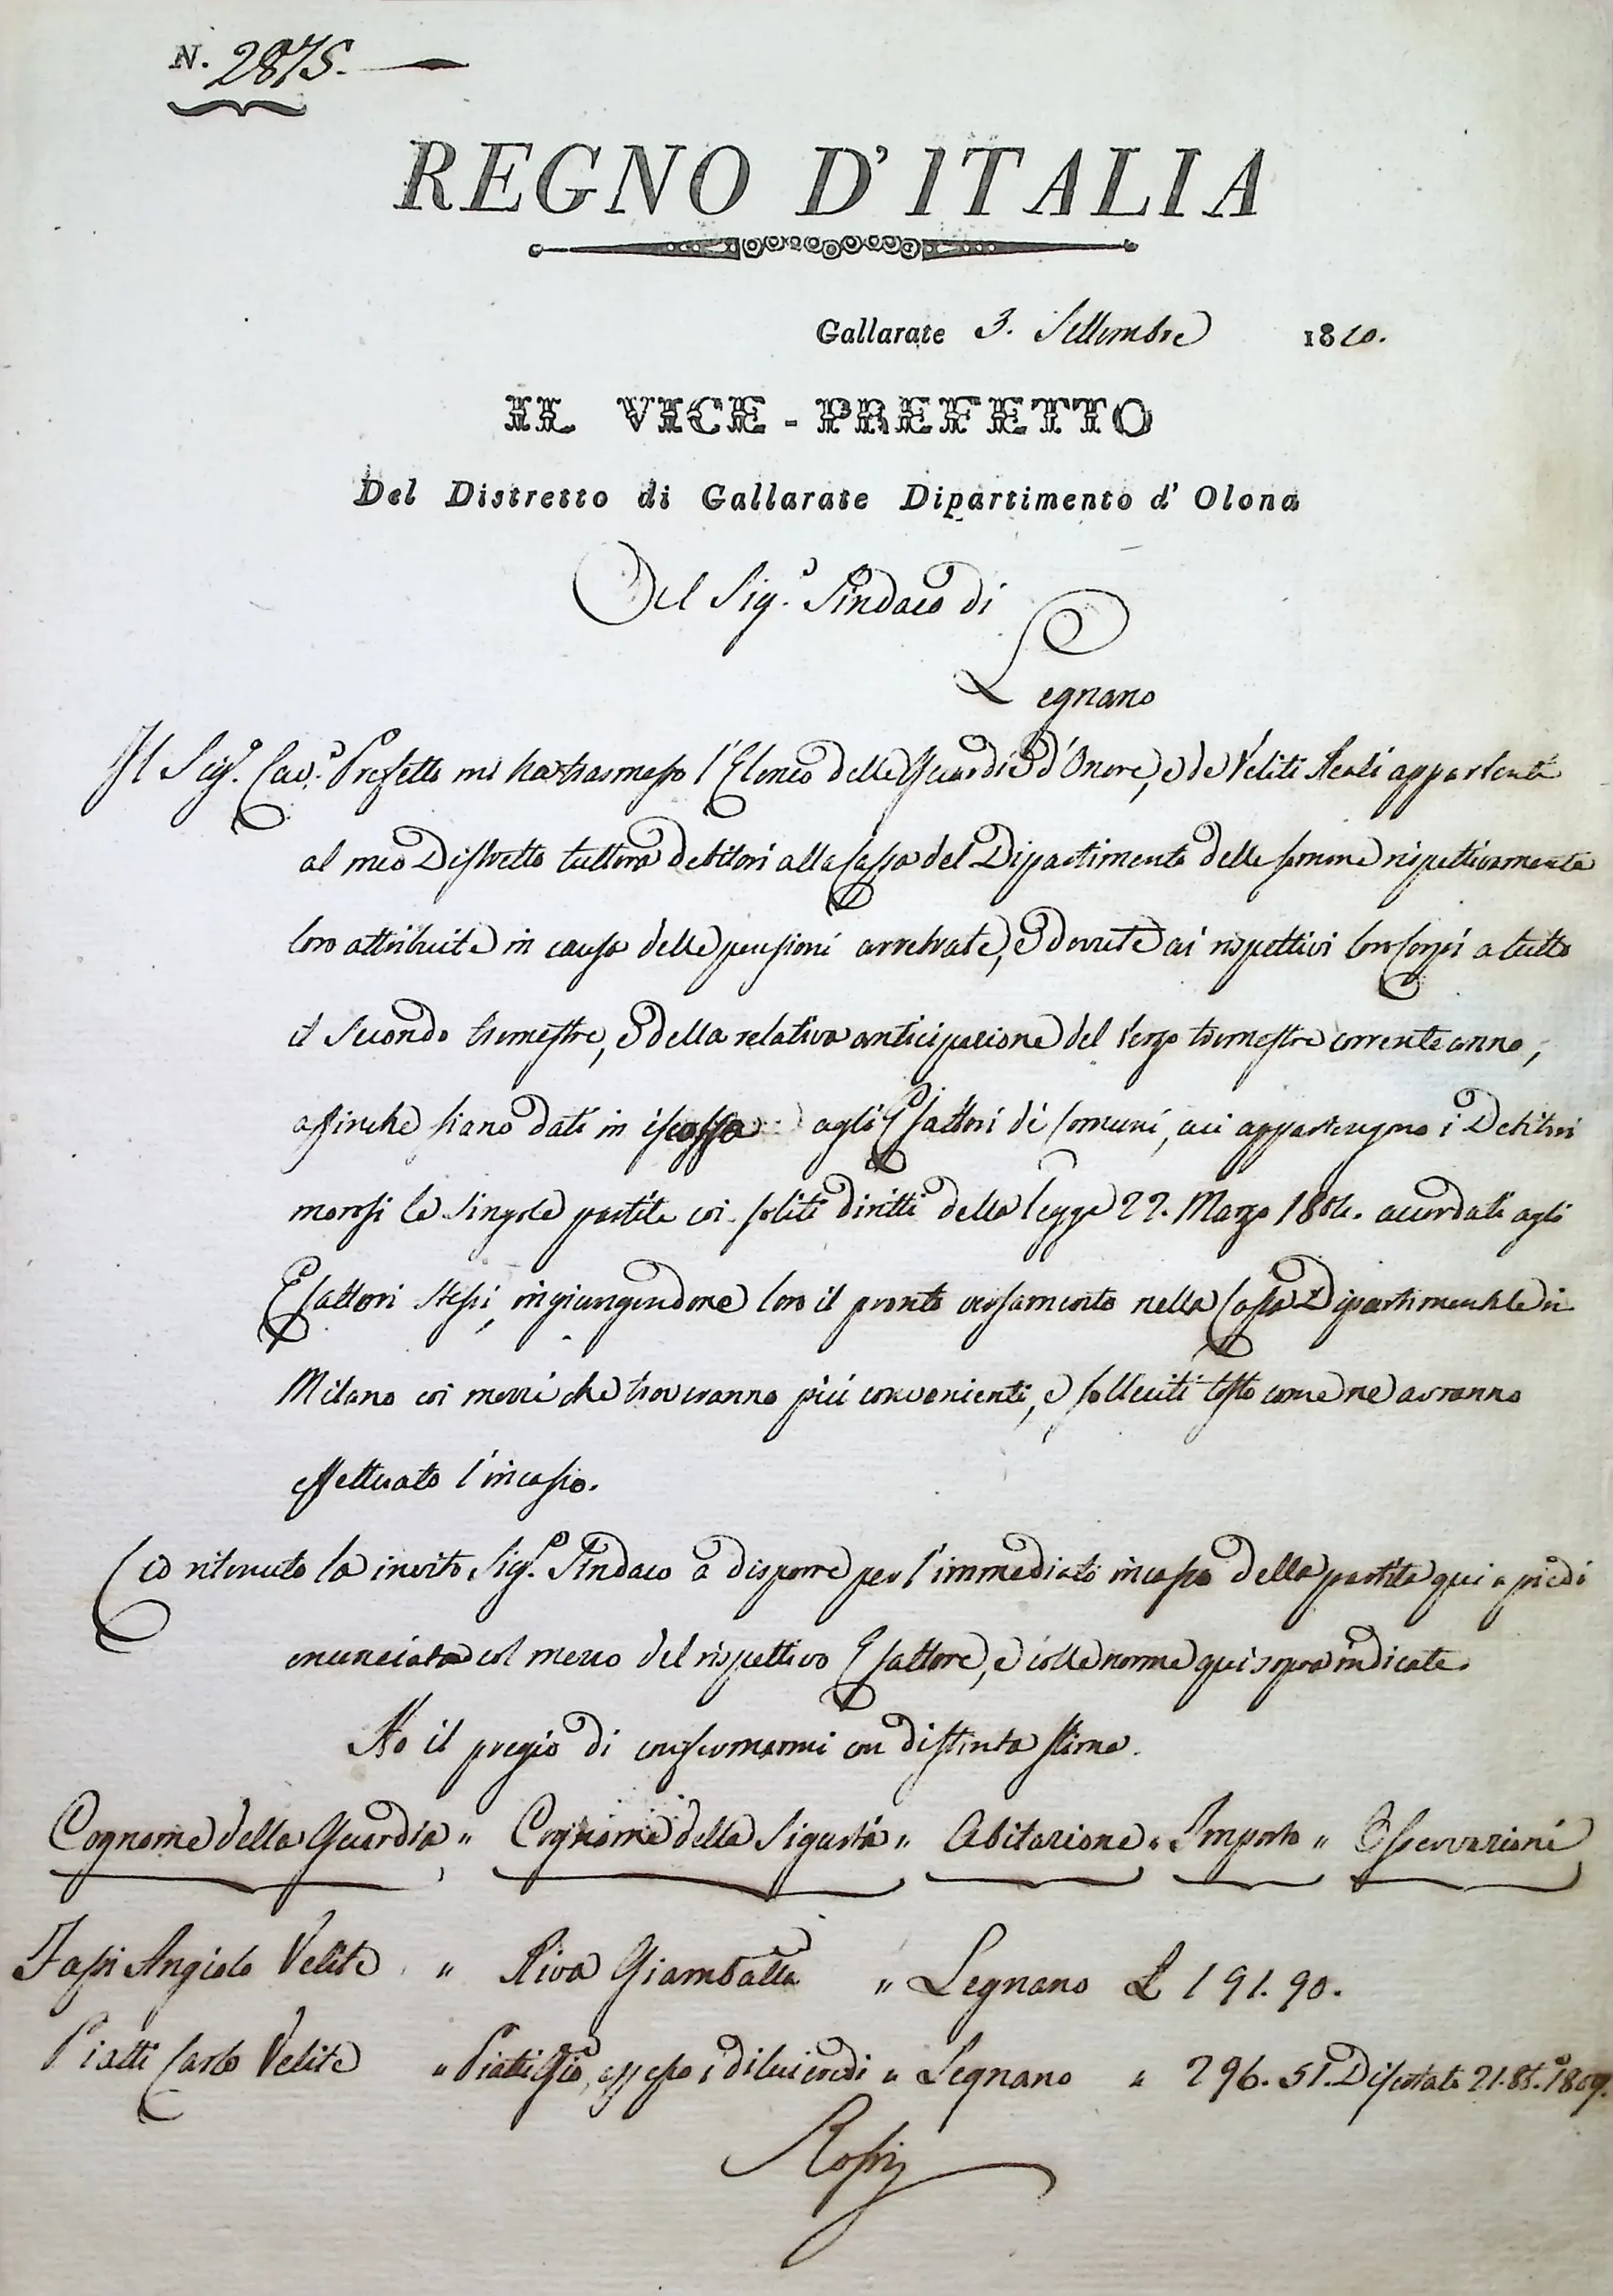 N. 2875.
REGNO D'ITALIA
Gallarate 3. Settembre 1810.
IL VICE-PREFETTO
Del Distretto di Gallarate Dipartimento d'Olona
Al Sig.r Sindaco di
Legnano
Il Sig.r Cav.r Prefetto mi ha trasmesso l'Elenco delle Guardie d'Onore, e de Veliti Reali appartenti
al mio Distretto tuttora debitori alla Cassa del Dipartimento delle somme rispettivamente
loro attribuite in causa delle pensioni arretrate, e dovute ai rispettivi loro Corpi a tutto
il secondo trimestre, e della relativa anticipazione del terzo trimestre corrente anno,
affinche siano dati in iscossa agli Esattori di Comuni, cui appartengono i Debitori
morosi le singole partite coi soliti diritti della legge 22. Marzo 1804. accordati agli
Esattori stessi, ingiungendone loro il pronto versamento nella Cassa Dipartimentale in
Milano coi mezzi che troveranno più convenienti, e solleciti tosto come ne avranno
effettuato l'incasso.
Ciò ritenuto la invito Sig.r Sindaco a disporre per l'immediato incasso della partita qui a piedi
enunciata col mezzo del rispettivo Esattore, e colle norme qui sopra indicate.
Ho il pregio di confermarmi con distinta stima.
Cognome della Guardia " Cognome della Sigurtà " Abitazione " Importo " Osservazioni
Tassi Angiolo Velite " Riva Giambatta " Legnano L 191. 90.
Piatti Carlo Velite " Piatti Gio, e di lui eredi " Legnano " 296. 51. Disertato 21. 1809.
Rossi